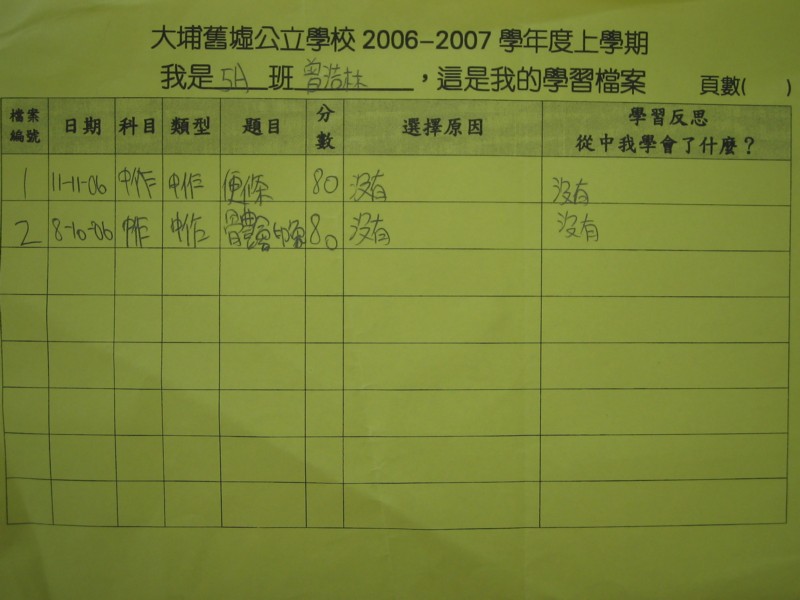 大埔舊墟公立學校 2006-2007 學年度上學期
我是 5A 班 曾浩林 ，這是我的學習檔案 頁數( )
檔案編號 日期 科目 類型 題目 分數 選擇原因 學習反思 從中我學會了什麼？
1 11-11-06 中作 中作 便條 80 沒有 沒有
2 8-10-06 中作 中作 80 沒有 沒有